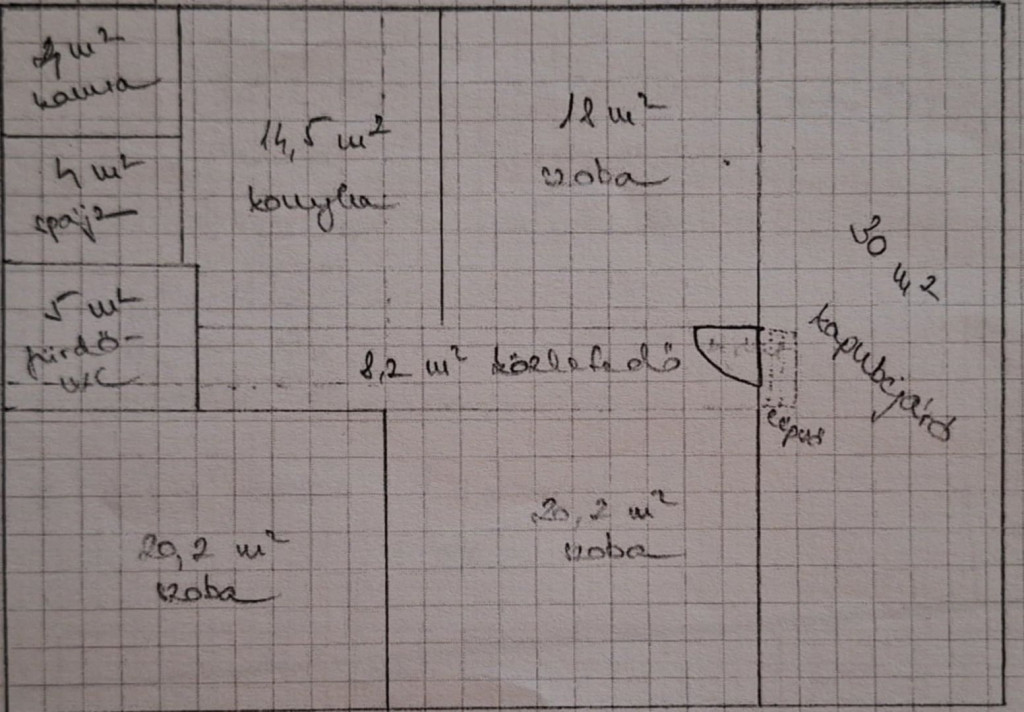 4 m²
kamra
4 m²
spájz
5 m²
fürdő-
WC
14,5 m²
konyha
18 m²
szoba
8,2 m² közlekedő
30 m2
kapubejáró
lépcső
20,2 m²
szoba
20,2 m²
szoba